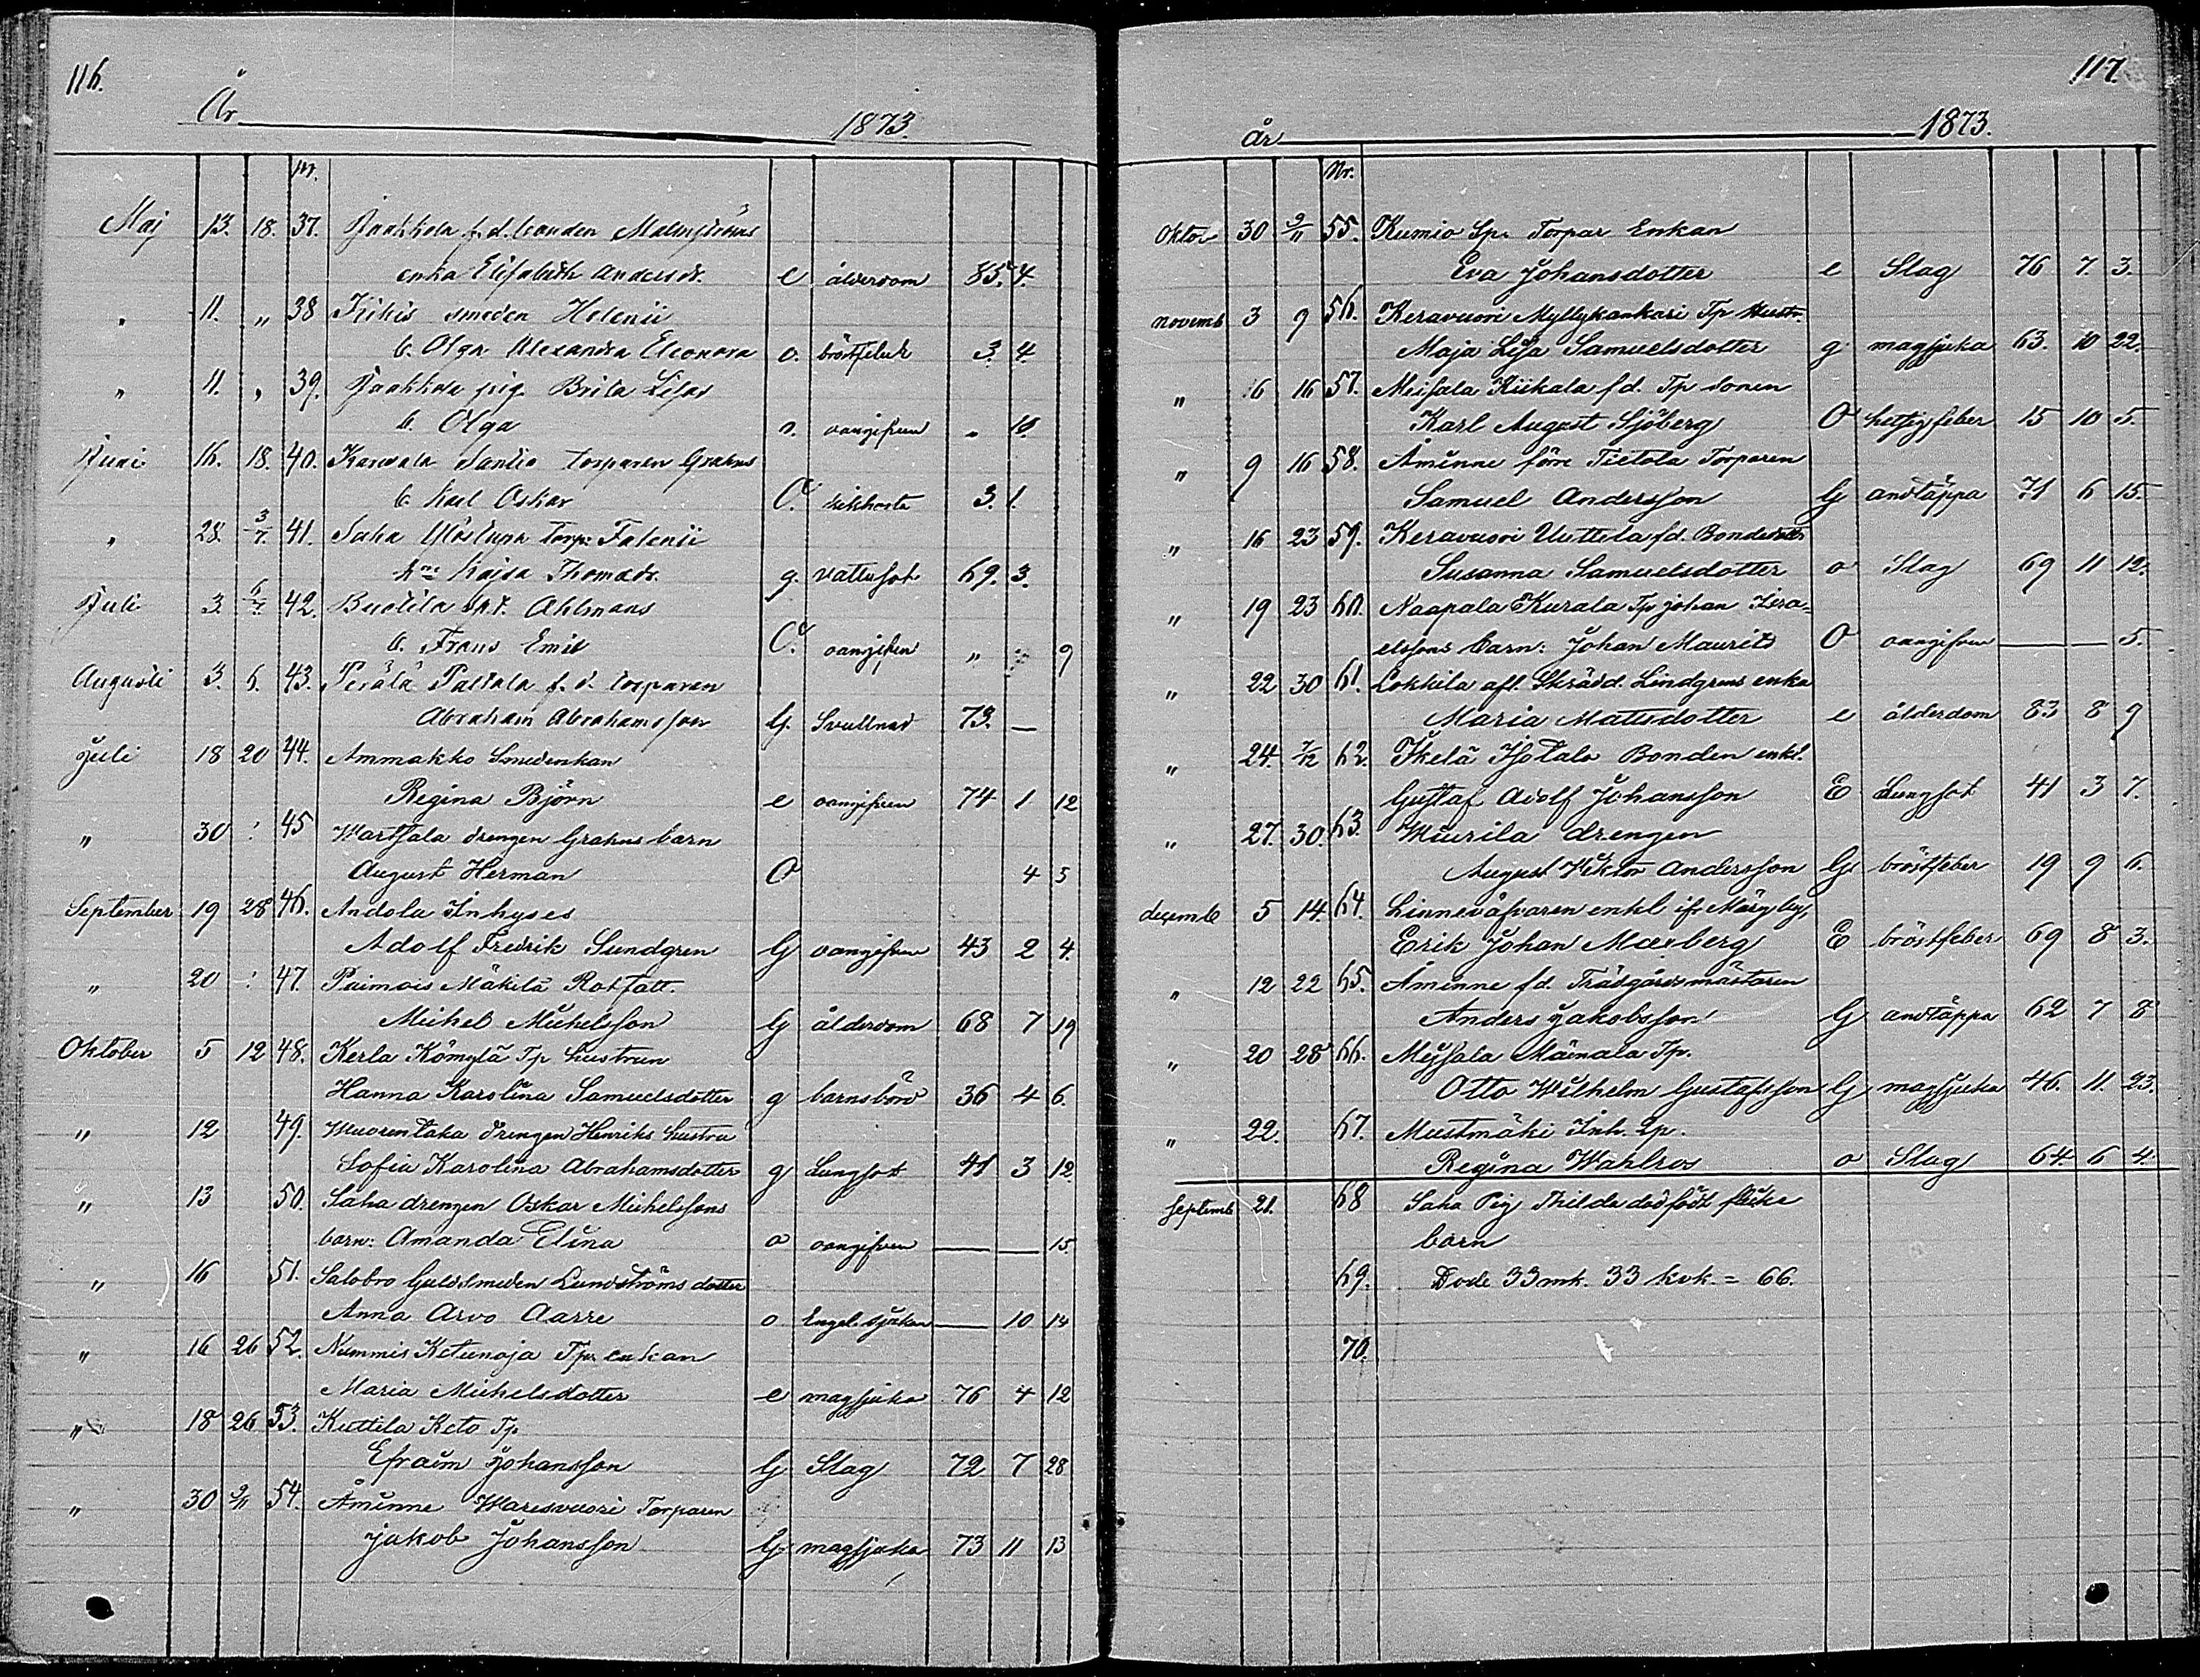 116.
År 1873.
Nr.
Maj 13. 18. 37. Paakkola f.d. bonden Malmströms
enka Elisabeth Andersdr. e ålderdom 85. 4.
" 11. " 38 Kikis smeden Helenii
b. Olga Alexandra Eleonora o. bröstfeber 3. 4
" 11. " 39. Paakkola pig. Brita Lisas
b. Olga o. oangifven " 10.
Juni 16. 18. 40. torparen Grahns
b. Karl Oskar O. kikhosta 3. 1.
" 28. 3/7. 41. Saha Yöstupa torp: Falenii
hru Kajsa Thomasdr. g. vattusot 69. 3.
Juli 3. 6/7. 42. Ahlmans
b. Frans Emil O. oangifven " 9
Augusti 3. 6. 43. Perälä Paltala f. d. torparen
Abraham Abrahamsson G. Svullnad 73. —
Juli 18 20 44. Ammakko Smedenkan
Regina Björn e oangifven 74 1 12
" 30 : 45 Wartsala drengen Grahns barn
August Herman O 4 5
September 19 28 46. Andola Inhyses
Adolf Fredrik Sundgren G oangifven 43 2 4.
" 20 : 47. Paimois Mäkilä Rotfatt.
Michel Michelsson G ålderdom 68 7 19
Oktober 5 12 48. Kerla Kömylä Tp hustrun
Hanna Karolina Samuelsdotter g barnsbörd 36 4 6.
" 12 49. Wuorentaka drengen Henriks hustru
Sofia Karolina Abrahamsdotter g Lungsot 41 3 12
" 13 50. Saha drengen Oskar Michelssons
barn: Amanda Elina o oangifven — — 15
" 16 51. Salobro Guldsmeden Lundströms dotter
Anna Arvo Aarre o Engel. sjukan — 10 14
" 16 26 52. Nummis Ketunoja Tp. enkan
Maria Michelsdotter e magsjuka 76 4 12
" 18 26 53. Kuttila Keto Tp
Efraim Johansson G Slag 72 7 28
" 30 9/11 54. Åminne Waresvuori Torparen
Jakob Johansson G. magsjuka 73 11 13
117.
år 1873.
Nr.
Oktob 30 9/11 55. Kumio Sp. Torpar Enkan
Eva Johansdotter e Slag 76 7. 3.
novemb 3 9 56. Keravuori Myllykankari Tp Hustr.
Maja Lisa Samuelsdotter g magsjuka 63. 10 22.
" 6 16 57. Meisala Kiikala f.d. Tp sonen
Karl August Sjöberg O hettig feber 15 10 5.
" 9 16 58. Åminne förre Tietola Torparen
Samuel Andersson G andtäppa 71 6 15.
" 16 23 59. Keravuori Uuttela f.d. Bondedottr
Susanna Samuelsdotter o Slag 69 11 12.
" 19 23 60. Naapala Kurala Tp johan Isra=
elssons barn: Johan Maurits O oangifven — — 5.
" 22 30 61. Lokkila afl. Skrädd. Lindgrens enka
Maria Matsdotter e ålderdom 83 8 9
" 24. 7/12 62. Ikelä Isotalo Bonden enkl.
Gustaf Adolf Johansson E Lungsot 41 3 7.
" 27. 30. 63. Wiurila drengen
August Viktor Andersson G. bröstfeber 19 9 6.
decemb 5 14. 64. Linneväfvaren enkl ifr Märy by,
Erik Johan Moesberg E bröstfeber 69 8 3.
" 12 22 65. Åminne f.d. Trädgårdsmästaren
Anders Jakobsson G andtäppa 62 7 8
" 20 28 66. Meisala Mainala Tp.
Otto Wilhelm Gustafsson G magsjuka 46. 11. 23.
" 22. 67. Mustmäki Inh. Qp.
Regina Wahlros o Slag 64. 6 4.
Septemb 21. 68 Saha Pig. Thilda dödfödt flicke
barn
69. Döde 33 mk. 33 kvk. = 66.
70.